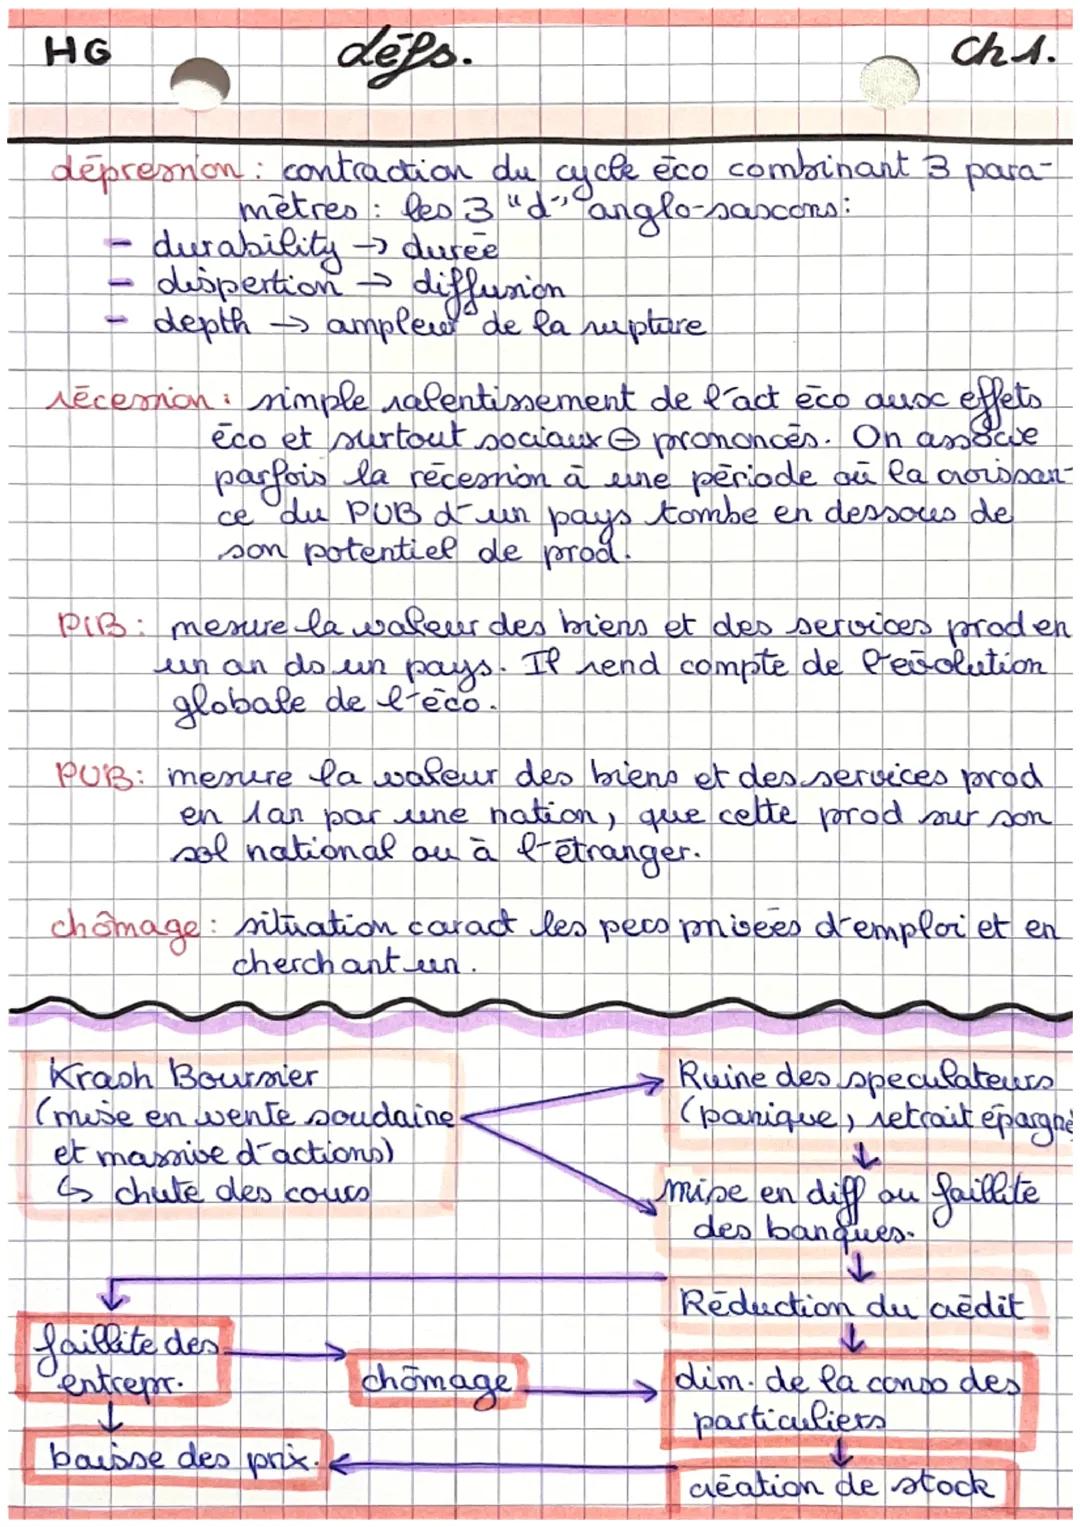 HG défs. Ch 1.
dépression : contraction du cycle éco combinant 3 para-
mètres : les 3 "d" anglo-saxons :
- durability → durée
- dispertion → diffusion
- depth → ampleur de la rupture
récession : simple ralentissement de l'act éco avec effets
éco et surtout sociaux ⊖ prononcés. On associe
parfois la récession à une période où la croissan-
ce du PUB d'un pays tombe en dessous de
son potentiel de prod.
PIB : mesure la valeur des biens et des services prod en
un an ds un pays. Il rend compte de l'évolution
globale de l'éco.
PUB : mesure la valeur des biens et des services prod
en 1 an par une nation, que cette prod sur son
sol national ou à l'étranger.
chômage : situation caract les pers privées d'emploi et en
cherchant un.
Krash Boursier
(mise en vente soudaine
et massive d'actions)
↳ chute des cours
Ruine des speculateurs
(panique, retrait épargne
↓
mise en diff ou faillite
des banques.
↓
Réduction du crédit
↓
faillite des
entrepr.
chômage
dim. de la conso des
particuliers
↓
baisse des prix.
création de stock